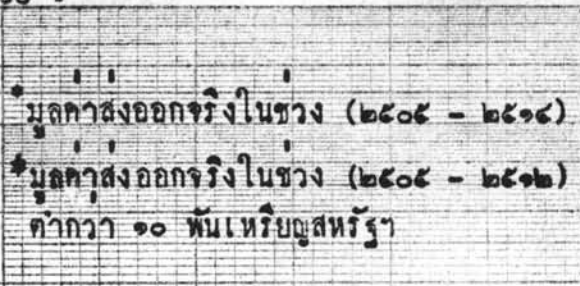 *มูลค่าส่งออกจริงในช่วง (๒๕๐๕ - ๒๕๑๔)
*มูลค่าส่งออกจริงในช่วง (๒๕๐๕ - ๒๕๑๒)
ต่ำกว่า ๑๐ พันเหรียญสหรัฐฯ